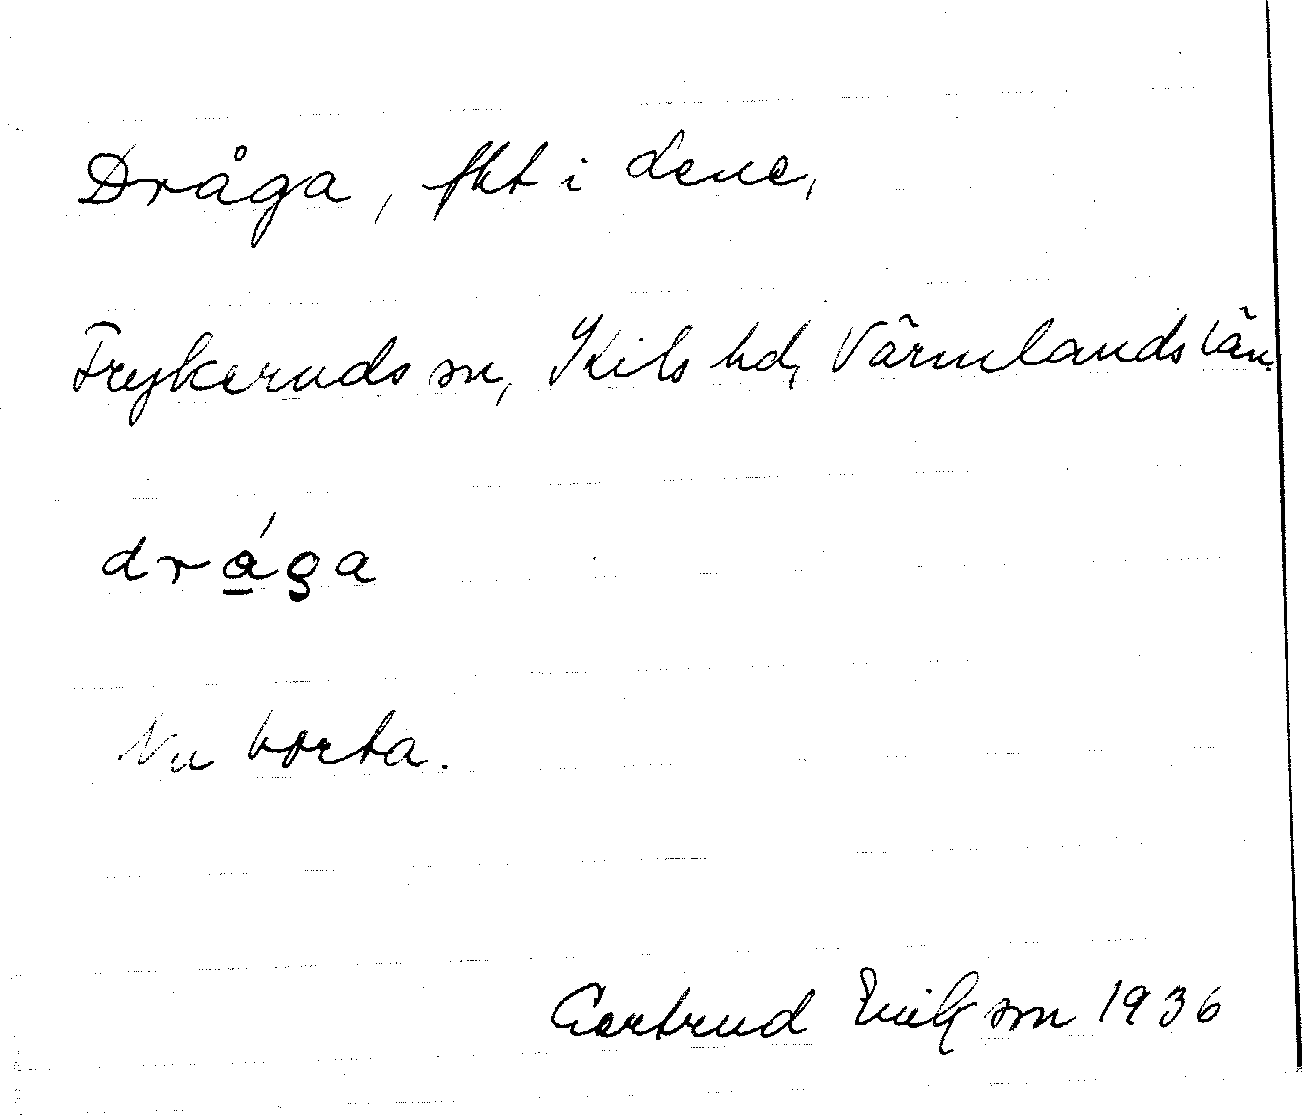 Dråga, fht i Lene,
Frykeruds sn, Kils hd, Värmlands län.
dråga
Nu borta.
Gertrud Erikson 1936